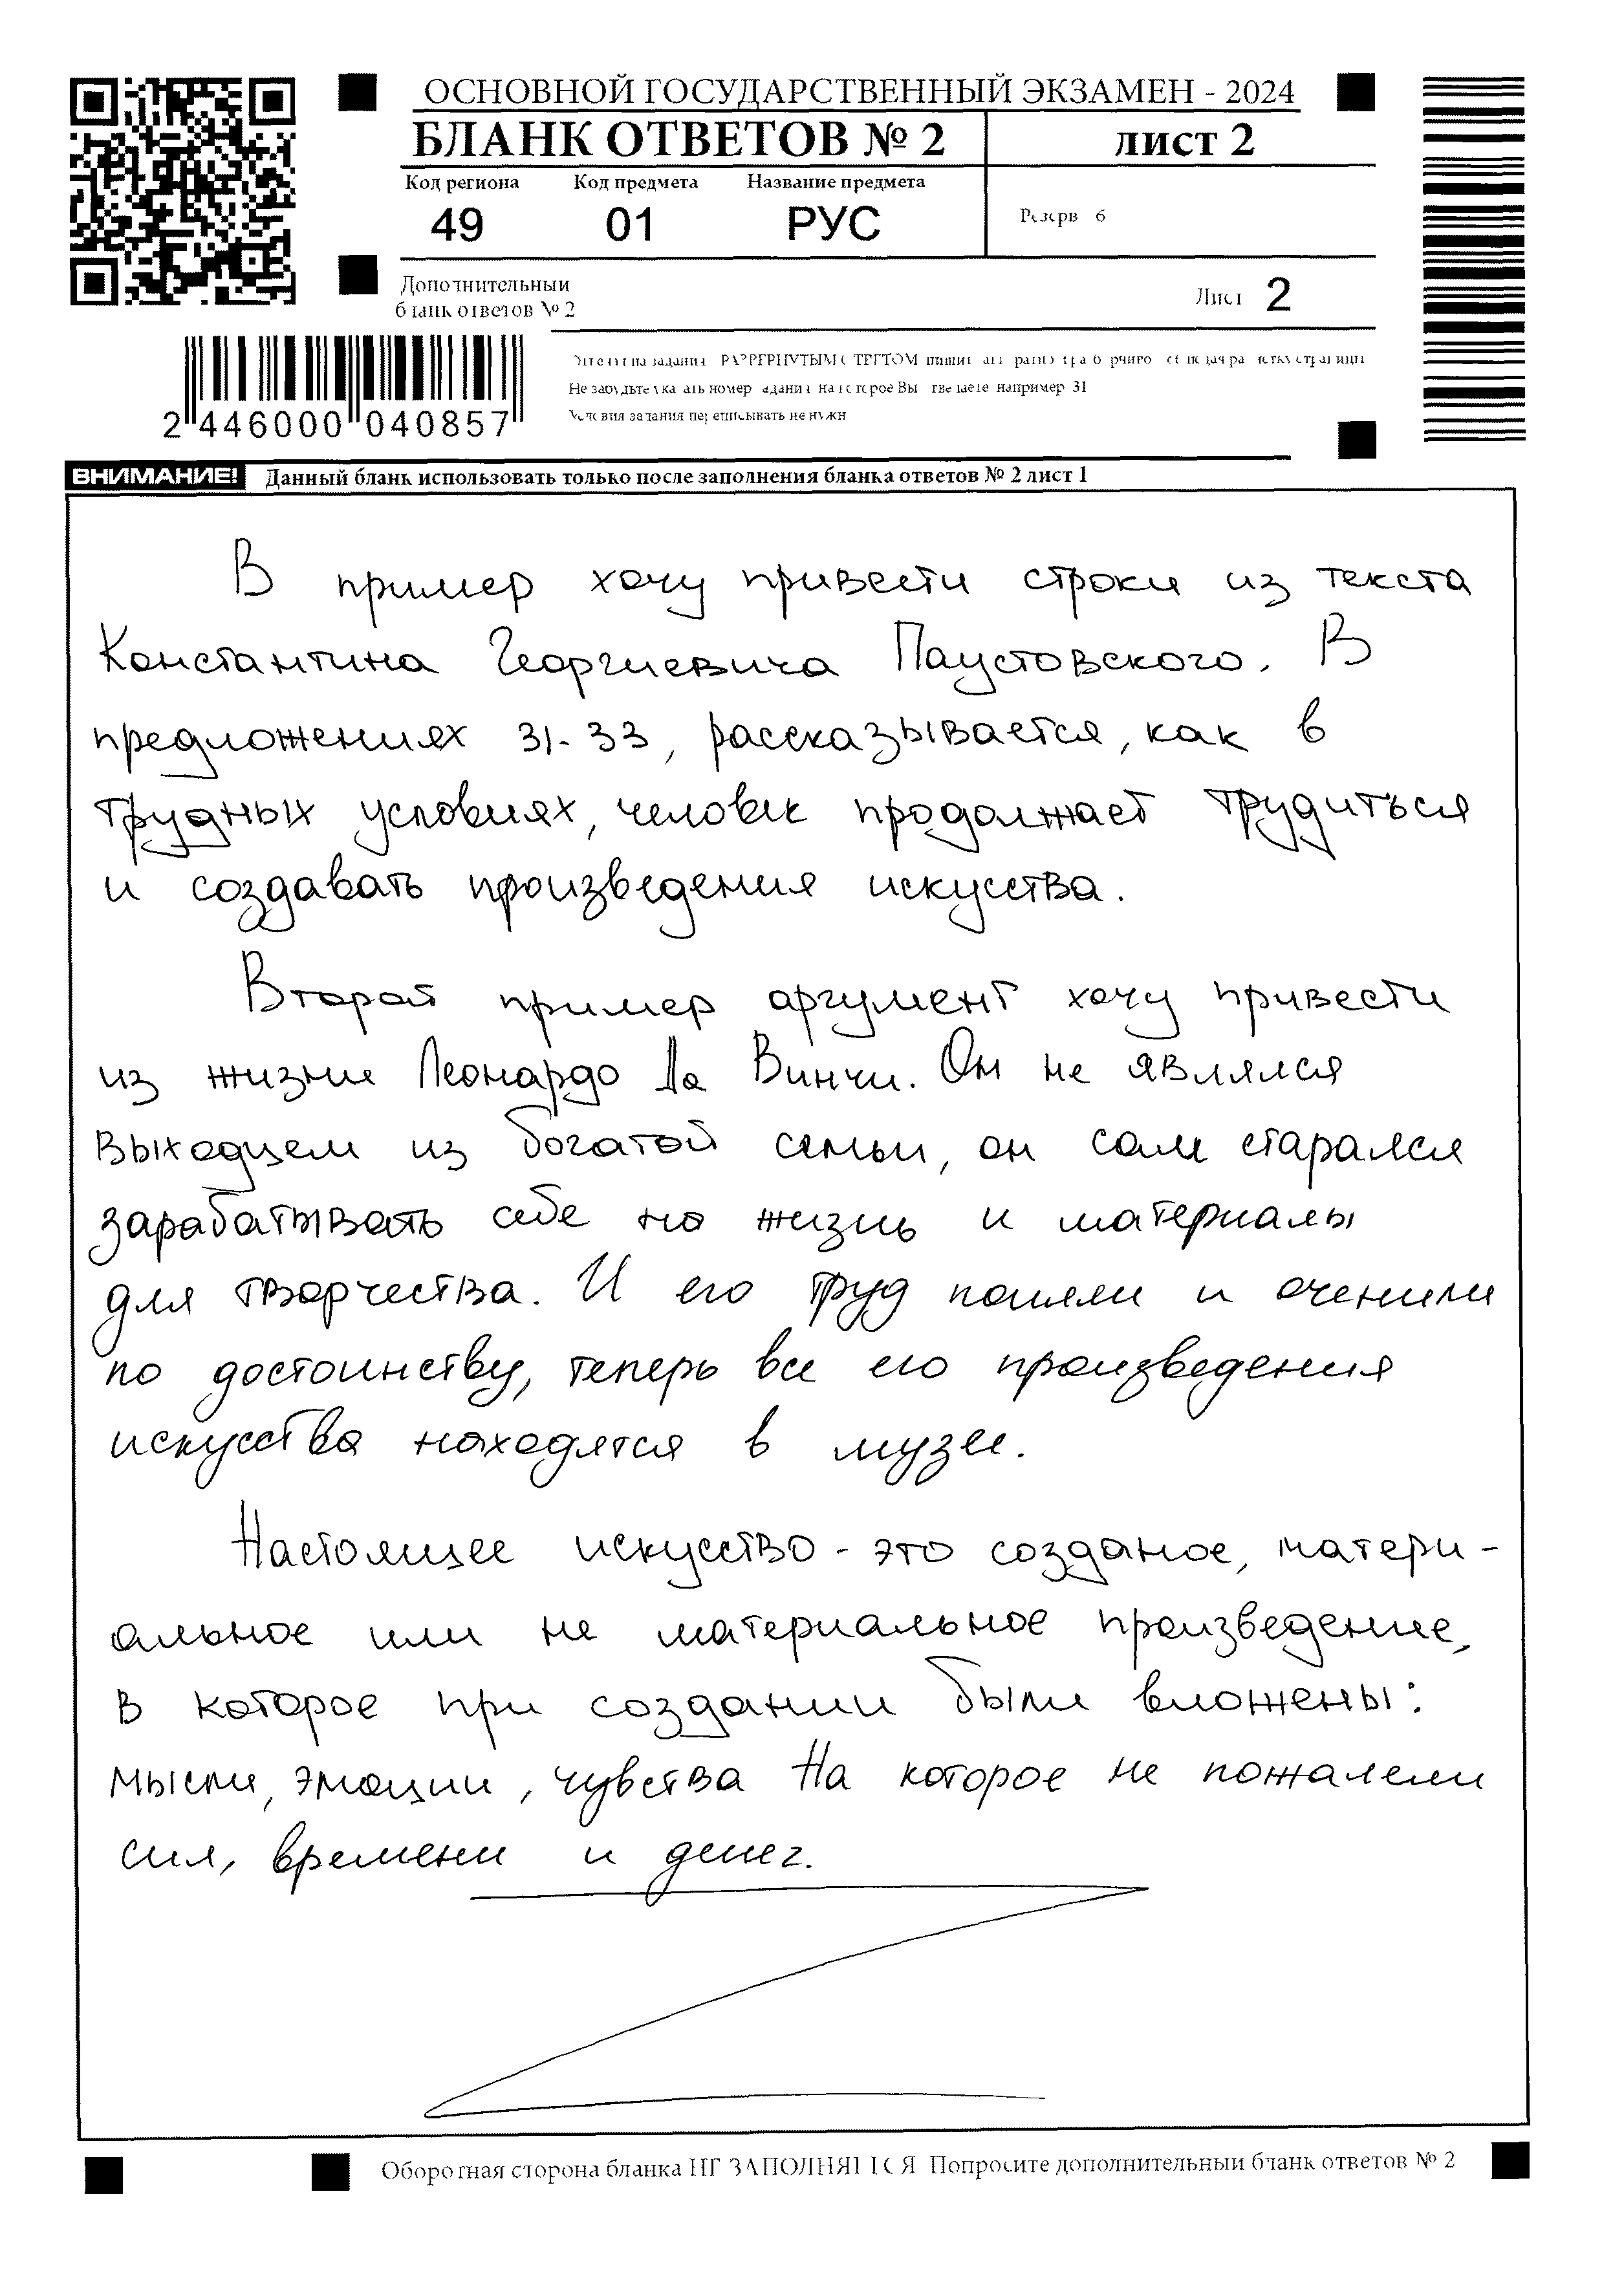 ОСНОВНОЙ ГОСУДАРСТВЕННЫЙ ЭКЗАМЕН - 2024
БЛАНК ОТВЕТОВ № 2
лист 2
Код региона
Код предмета
Название предмета
Резерв 6
49
01
РУС
Дополнительный
бланк ответов № 2
Лист 2
2 446000 040857
Не забудьте указать номер задания на которое Вы отвечаете например 31
Условия задания переписывать не нужно
ВНИМАНИЕ! Данный бланк использовать только после заполнения бланка ответов № 2 лист 1
В пример хочу привести строки из текста
Константина Георгиевича Паустовского. В
предложениях 31-33, рассказывается, как в
трудных условиях, человек продолжает трудиться
и создавать произведения искусства.
Второй пример аргумент хочу привести
из жизни Леонардо Да Винчи. Он не являлся
выходцем из богатой семьи, он сам старался
зарабатывать себе на жизнь и материалы
для творчества. И его труд поняли и оченили
по достоинству, теперь все его произведения
искусства находятся в музее.
Настоящее искусство - это созданое, матери-
альное или не материальное произведение,
в которое при создании были вложены:
мысли, эмоции, чувства На которое не пожалели
сил, времени и денег.
Оборотная сторона бланка НЕ ЗАПОЛНЯЕТСЯ Попросите дополнительный бланк ответов № 2